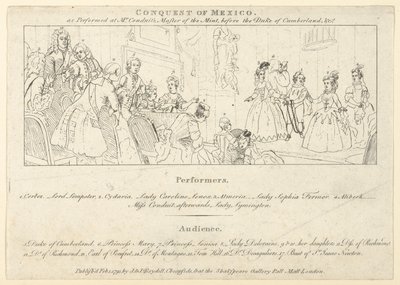 CONQUEST OF MEXICO.
as Performed at Mr. Conduit's, Master of the Mint, before the Duke of Cumberland, &c.
Performers.
1. Cortez. Lord Lempster, 2. Cydaria, Lady Caroline Lenox, 3. Almeria, Lady Sophia Fermor 4. Alibech
Miss Conduit, afterwards Lady Lymington.
Audience.
5. Duke of Cumberland 6. Princess Mary, 7. Princess Louisa 8. Lady Deloraine, 9 & 10. her daughters 11. Dss. of Richmond
12. D. of Richmond, 13. Earl of Pomfret, 14. D. of Montague, 15. Tom Hill, 16. Dr. Desaguliers, 17. Bust of Sr. Isaac Newton.
Publish'd Feb. 1, 1791, by J. & J. Boydell, Cheapside, & at the Shakspeare Gallery Pall Mall London.